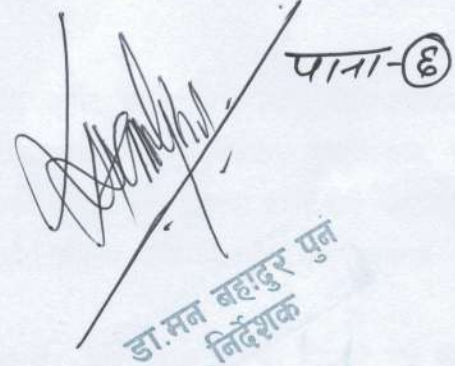 पाना-६
डा. मन बहादुर पुन
निर्देशक